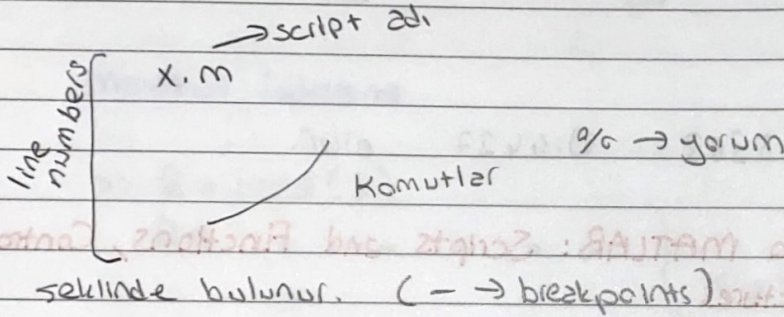 → script adı
x.m
line numbers
% → yorum
Komutlar
seklinde bulunur. (- → breakpoints)